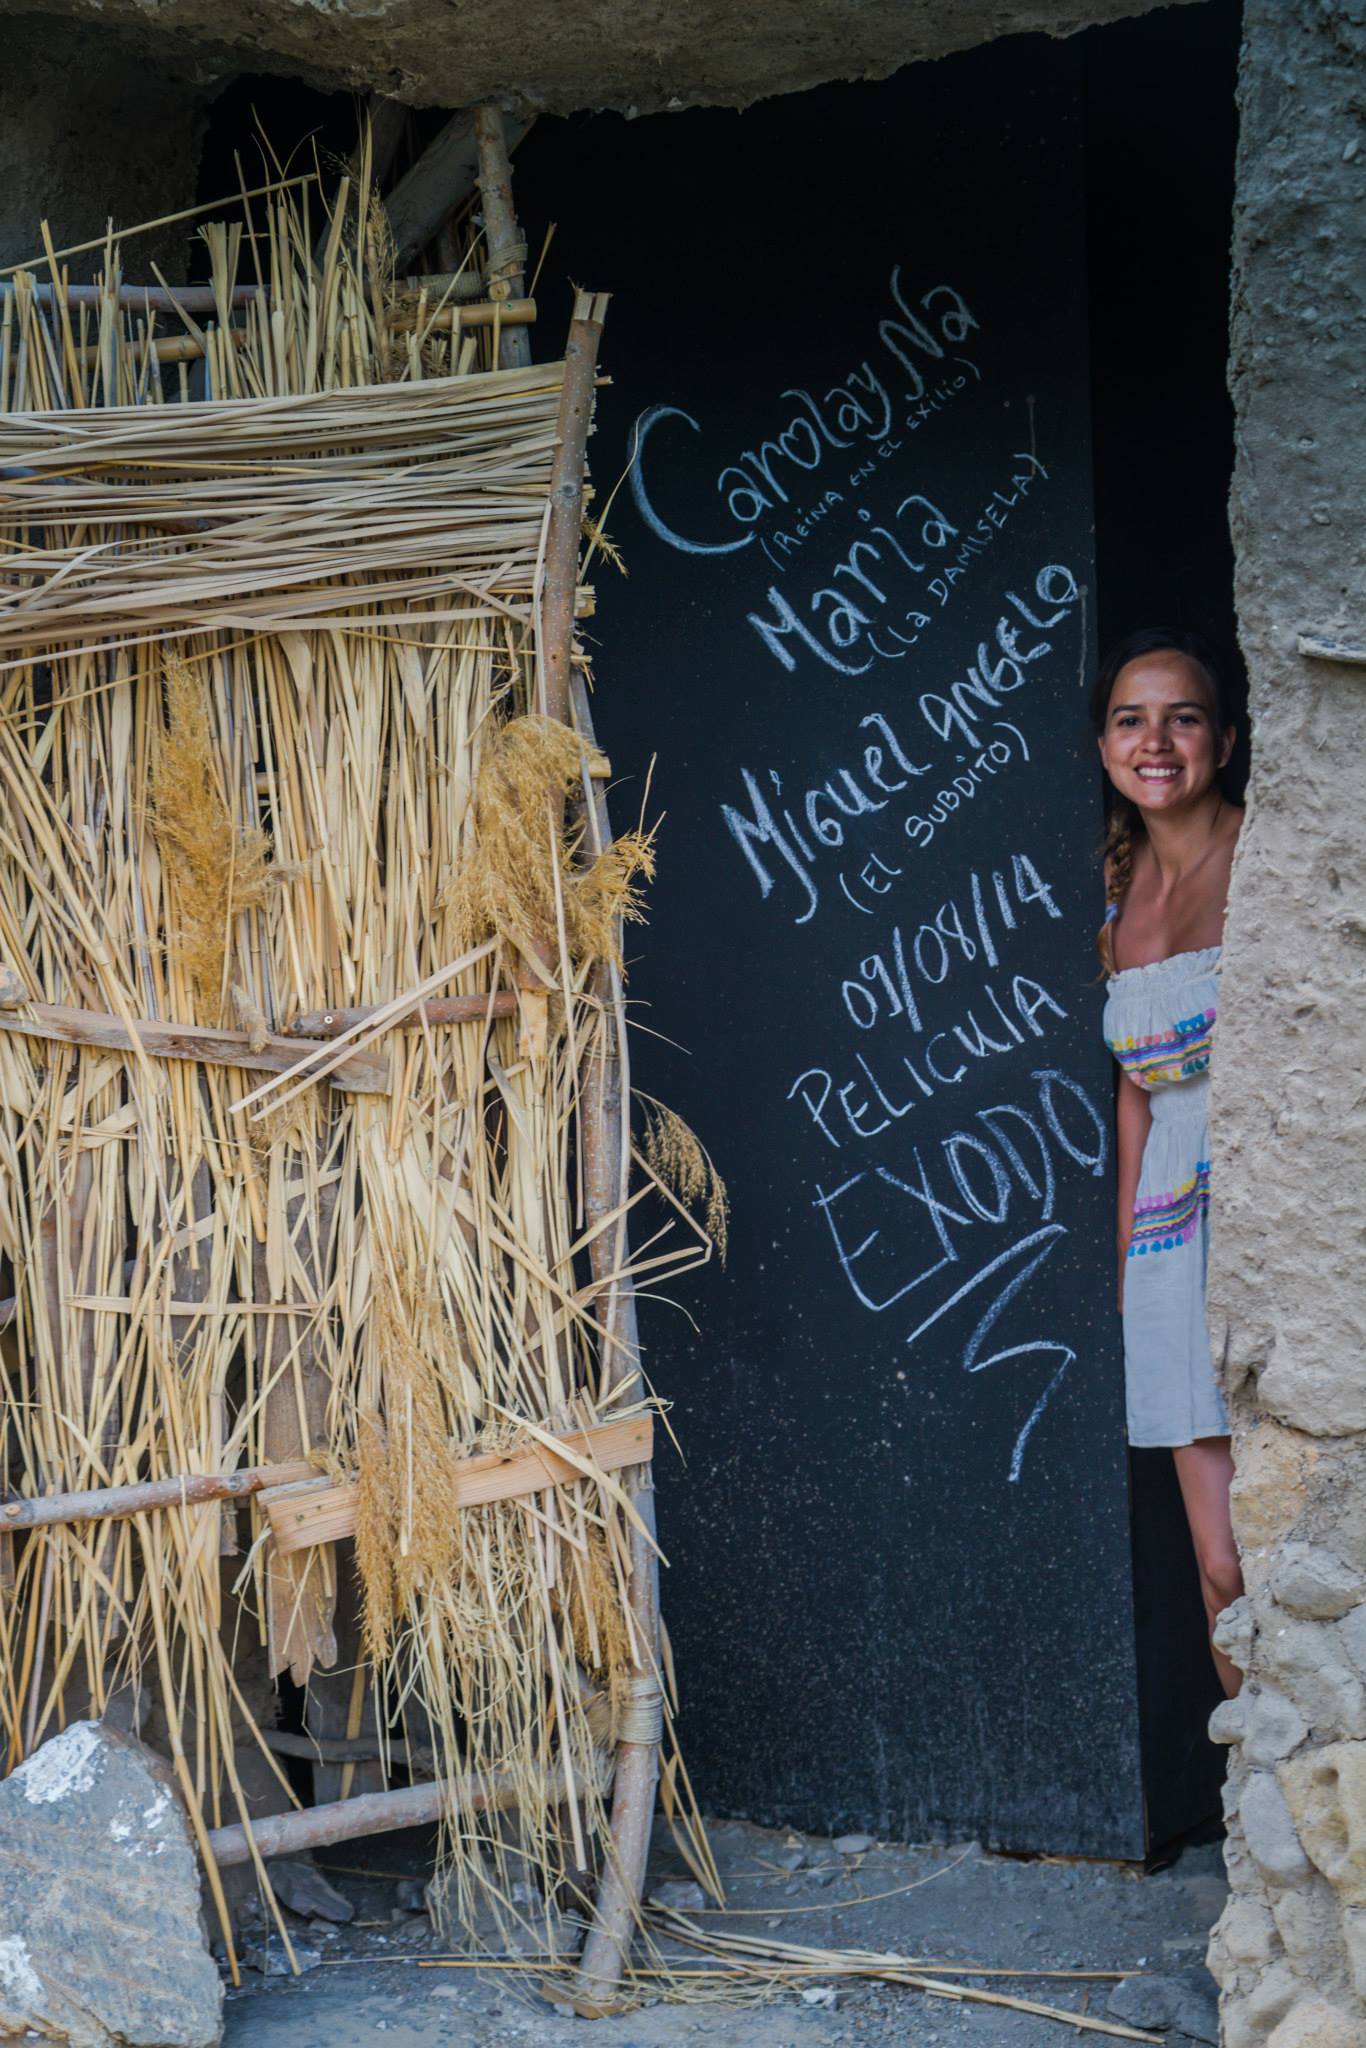 Carolay Na
(REINA EN EL EXILIO)
Maria
(La DAMISELA)
Miguel ANGELO
(EL SUBDITO)
09/08/14
PELICULA
EXODO